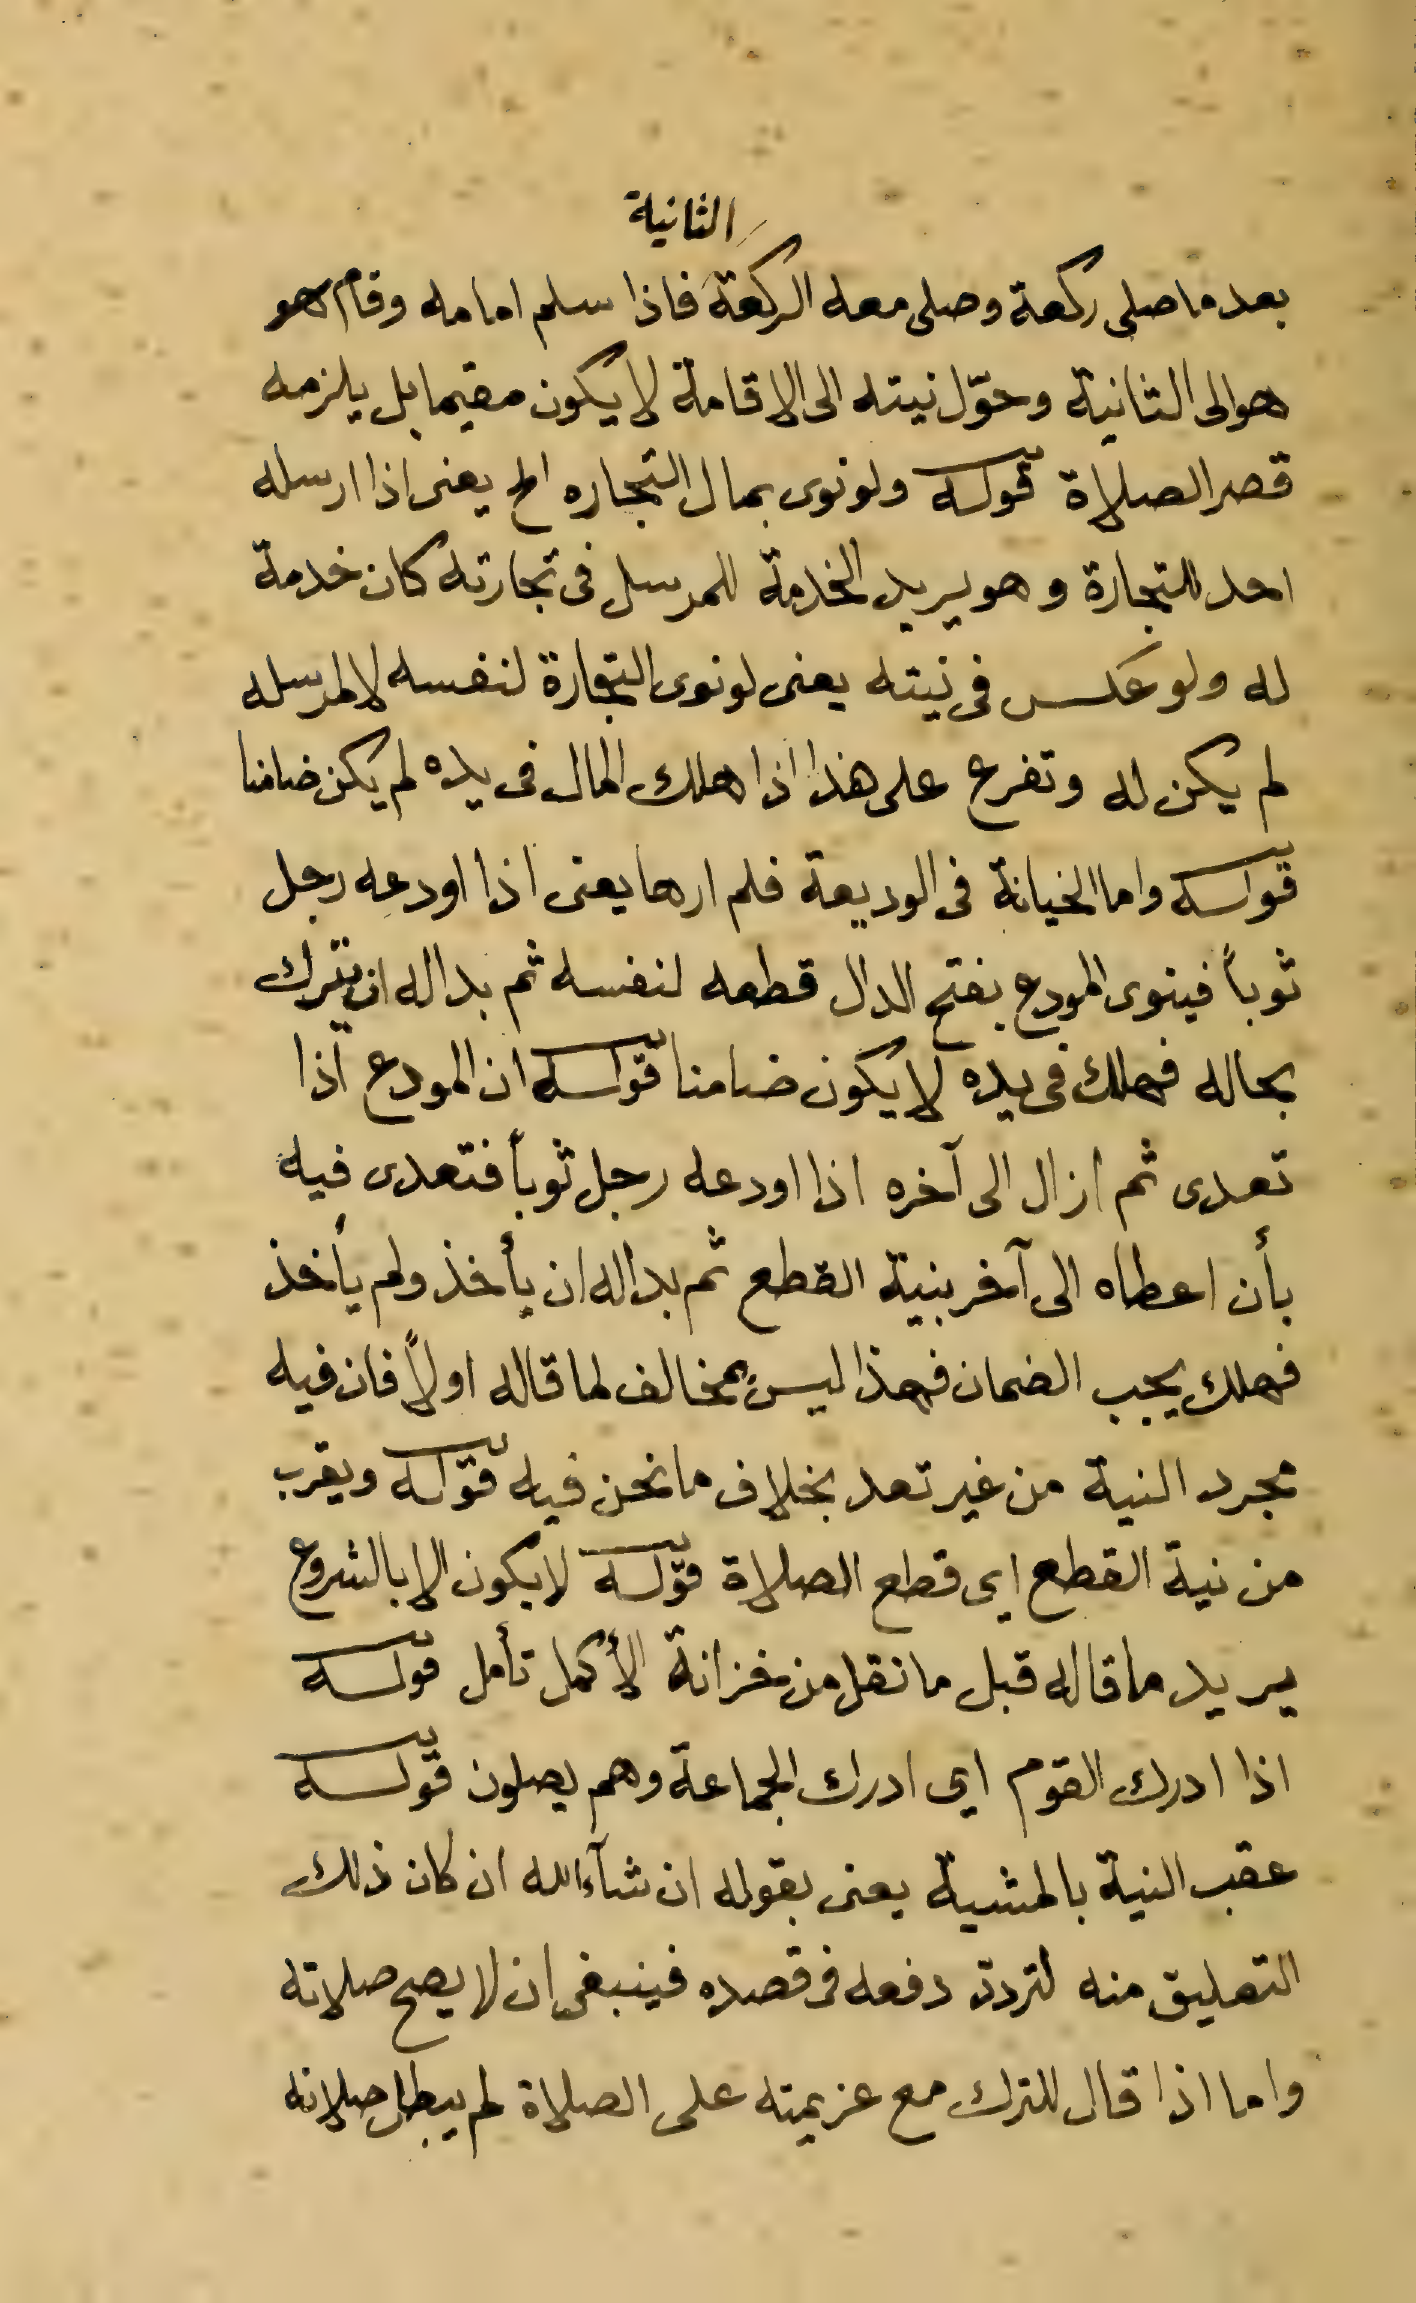 الثانية
بعد ما صلى ركعة وصلى معه الركعة فاذا سلم امامه وقام هو
هو الى الثانية وحوّل نيته الى الاقامة لا يكون مقيما بل يلزمه
قصر الصلاة قوله ولو نوى بمال التجاره الخ يعنى اذا ارسله
احد للتجارة وهو يريد الخدمة للمرسل فى تجارته كان خدمة
له ولو عكس فى نيته يعنى لو نوى التجارة لنفسه لا لمرسله
لم يكن له وتفرع على هذا اذا هلك المال فى يده لم يكن ضامنا
قوله واما الخيانة فى الوديعة فلم ارها يعنى اذا اودعه رجل
ثوباً فينوى المودع بفتح الدال قطعه لنفسه ثم بدا له ان يترك
بحاله فهلك فى يده لا يكون ضامنا قوله ان المودع اذا
تعدى ثم ازال الى آخره اذا اودعه رجل ثوباً فتعدى فيه
بأن اعطاه الى آخر بنية القطع ثم بدا له ان يأخذ ولم يأخذ
فهلك يجب الضمان فهذا ليس بمخالف لما قاله اولاً فان فيه
مجرد النية من غير تعد بخلاف ما نحن فيه قوله ويقرب
من نية القطع اى قطع الصلاة قوله لا يكون الا بالشروع
يريد ما قاله قبل ما نقل من خزانة الأكمل تأمل قوله
اذا ادرك القوم اى ادرك الجماعة وهم يصلون قوله
عقب النية بالمشية يعنى بقوله ان شآء الله ان كان ذلك
التعليق منه لتردد دفعه فى قصده فينبغى ان لا يصح صلاته
واما اذا قال للترك مع عزيمته على الصلاة لم يبطل صلاته